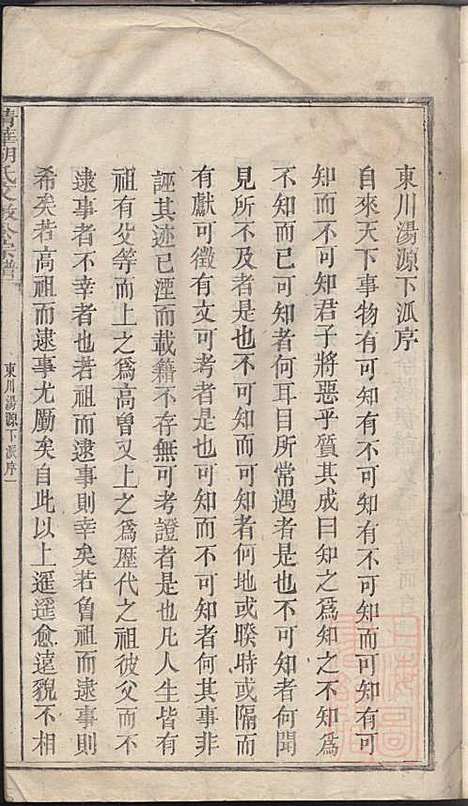 東川湯源下派序
自來天下事物有可知有不可知而可知有可
知而不可知君子將惡乎質其成曰知之爲知之不知爲
不知而已可知者何耳目所常遇者是也不可知者何聞
見所不及者是也可知而不可知者何地或暌時或隔而
有獻可徵有文可考者是也可知而不可知者何其事非
誣其迹已湮而載籍不存無可考證者是也凡人生皆有
祖有父等而上之爲高曾又上之爲歷代之祖彼父而不
逮事者不幸者也若祖而逮事則幸矣若曾祖而逮事則
希矣若高祖而逮事尤尠矣自此以上遥遥愈遠貌不相
清華胡氏文敏公宗譜
東川湯源下派序一